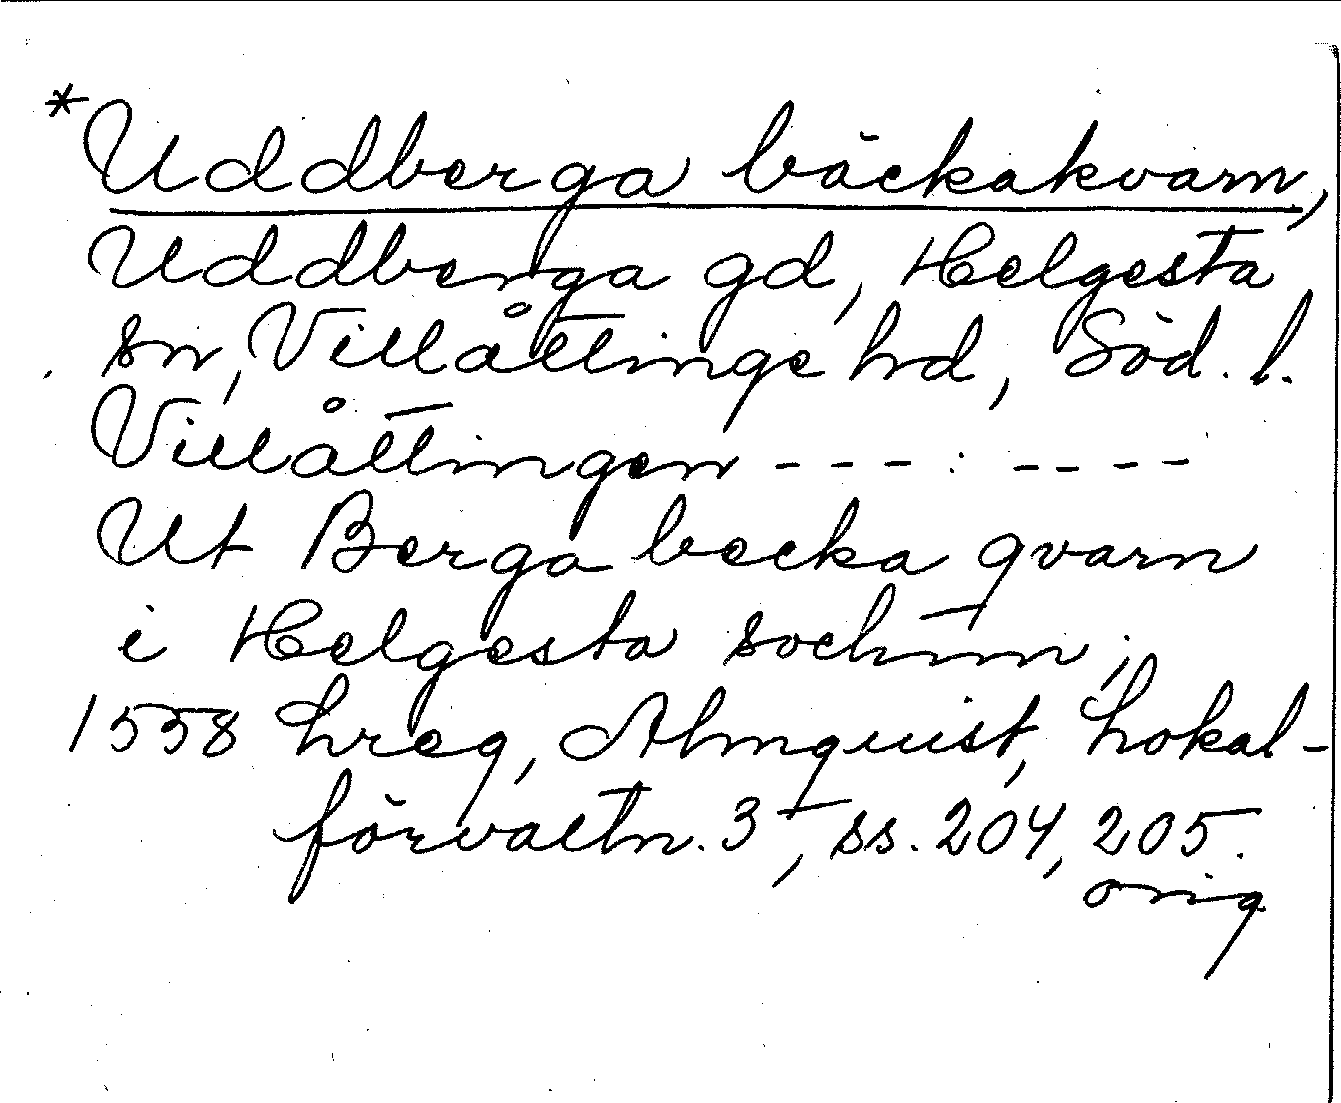 *Uddberga bäckakvarn,
Uddberga gd, Helgesta
sn, Villåttinge hd, Söd. l.
Villåttingen - - - : - - - -
Ut Berga becka qvarn
i Helgesta sochnn;
1558 Lreg, Almquist, Lokal-
förvaltn. 3, ss. 204, 205.
orig